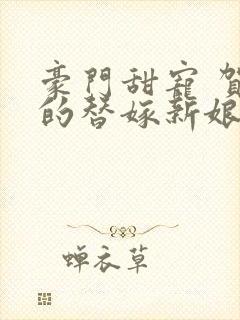 豪門甜寵 賀
的替嫁新娘
蝉衣草